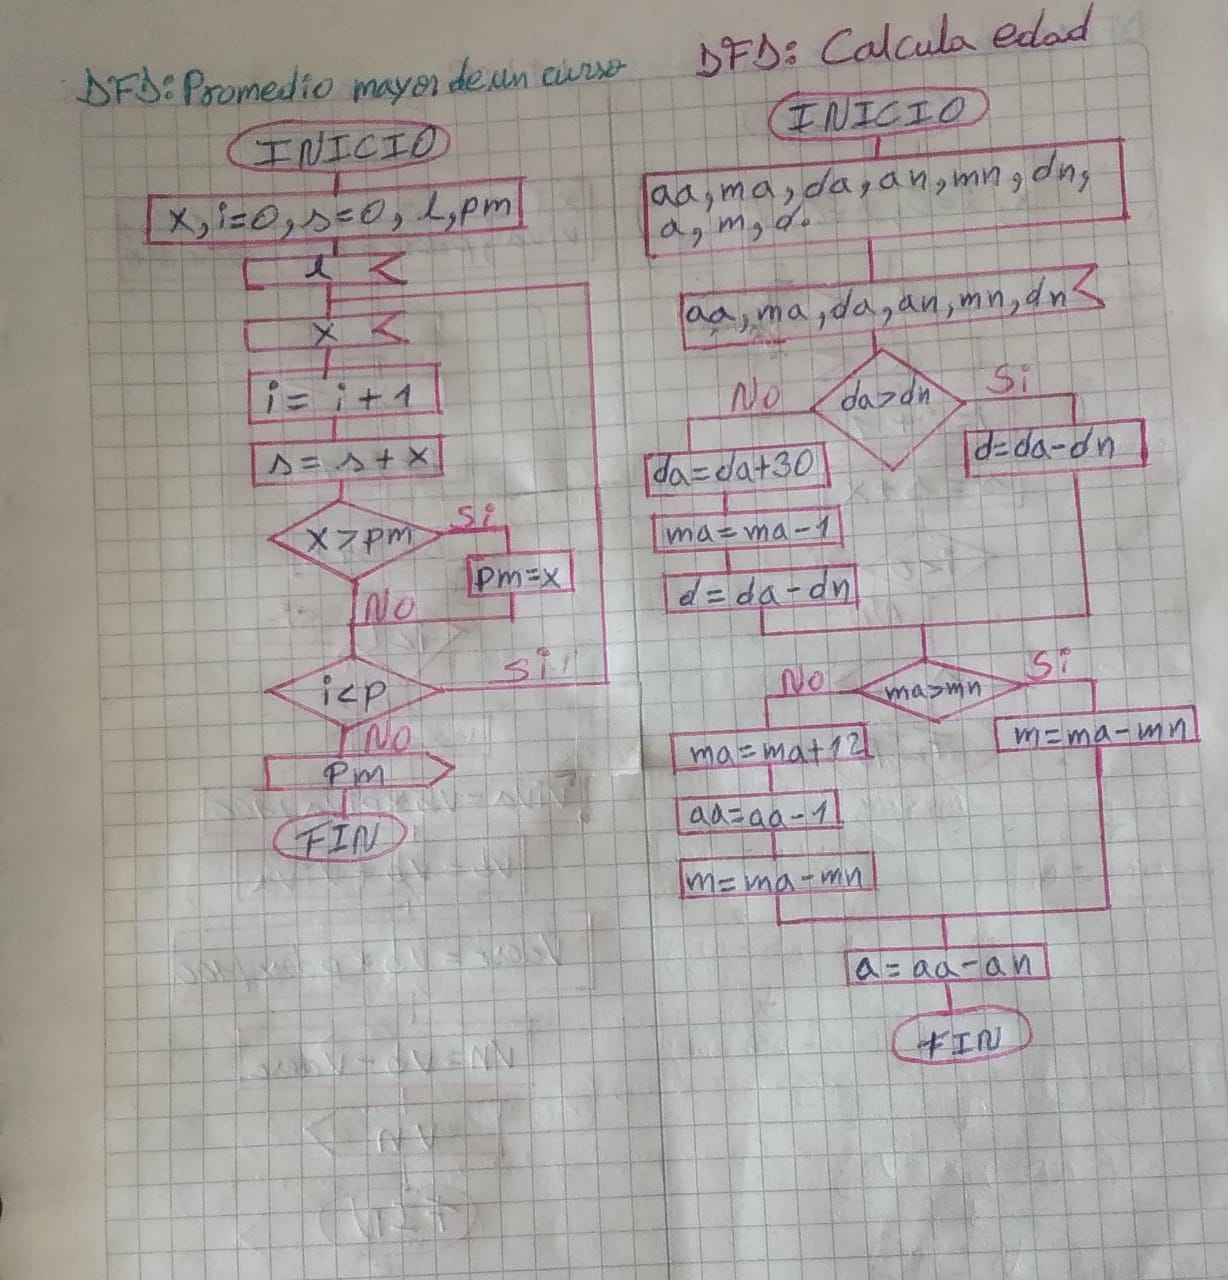 DFD: Promedio mayor de un curso
INICIO
x, i=0, s=0, l, pm
l
x
i = i + 1
s = s + x
x > pm
Si
pm=x
No
i<p
Si
No
Pm
FIN
DFD: Calcula edad
INICIO
aa, ma, da, an, mn, dn,
a, m, d.
aa, ma, da, an, mn, dn
da>dn
No
Si
da=da+30
ma=ma-1
d=da-dn
d=da-dn
ma>mn
No
Si
ma=ma+12
aa=aa-1
m=ma-mn
m=ma-mn
a=aa-an
FIN